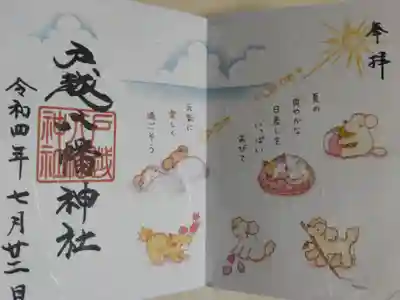 奉拝
夏の
爽やかな
日差しを
いっぱい
あびて
元気に
楽しく
過ごそう
戸越八幡神社
戸越
八幡
神社
令和四年七月廿二日